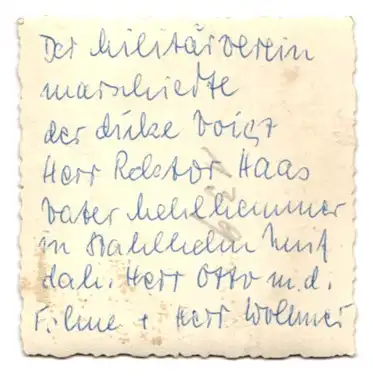 Der Militärverein
marschierte
der dicke Voigt
Herr Rektor Haas
Vater
in Stahlhelm
dah. Herr Otto m. d.
Fahne + Herr